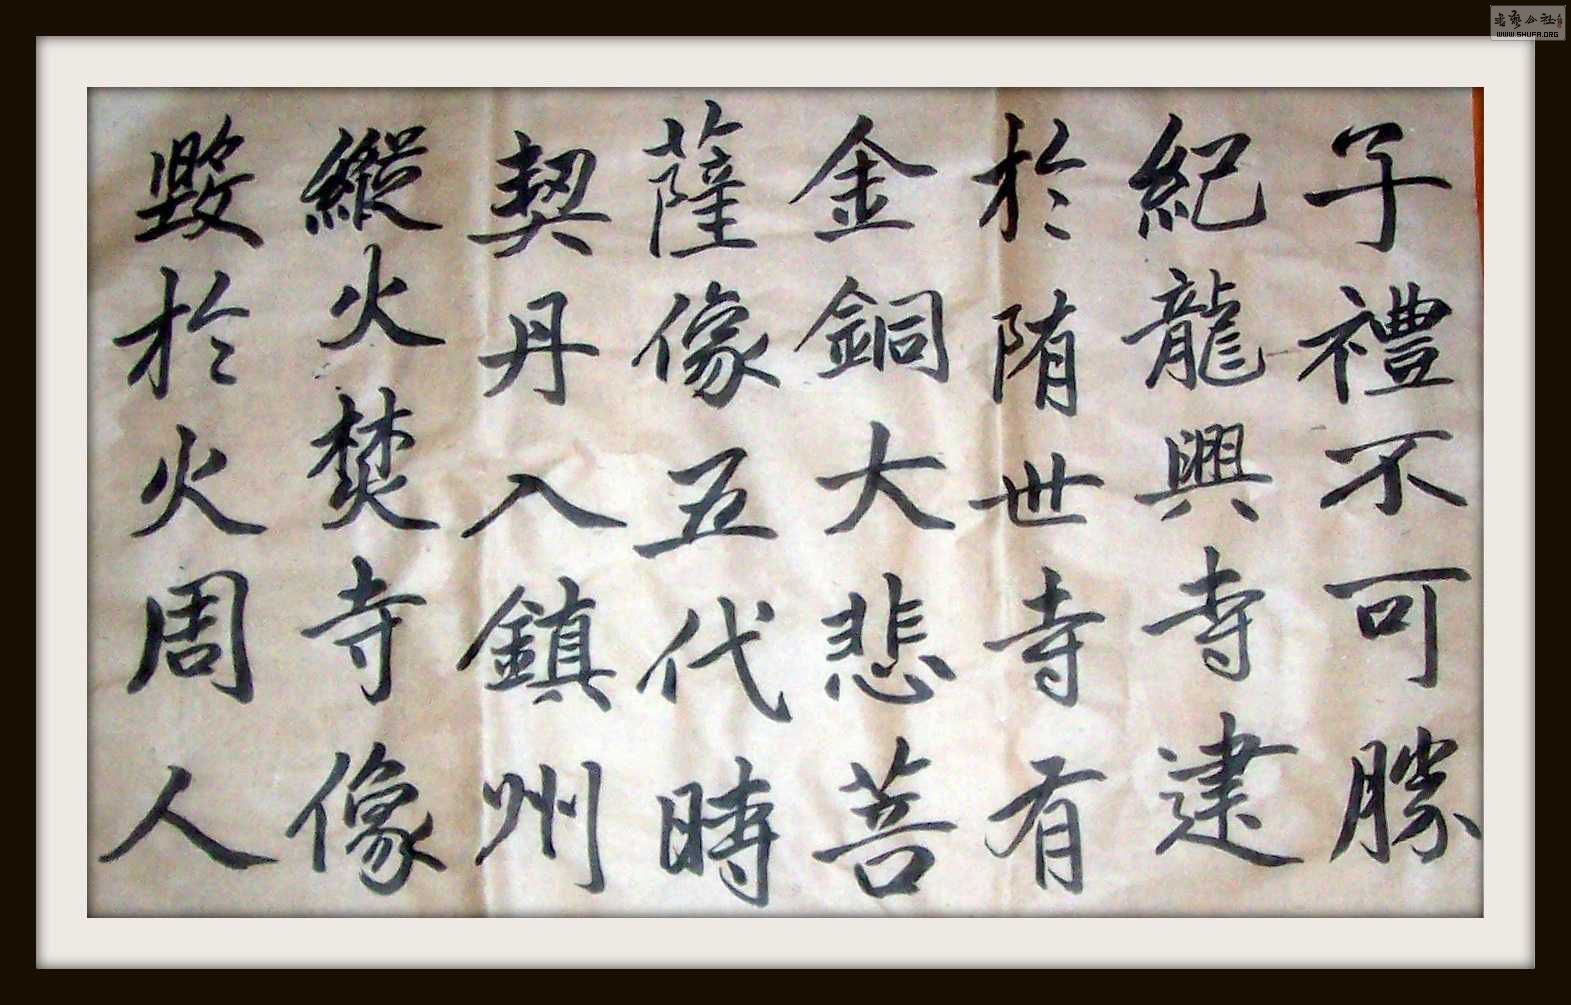 子禮不可勝
紀龍興寺建
於隋世寺有
金銅大悲菩
薩像五代時
契丹入鎮州
縱火焚寺像
毀於火周人
WWW.SHUFA.ORG